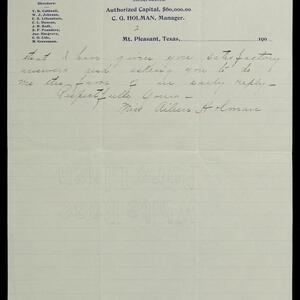 Directors:
T. B. Caldwell,
W. J. Johnson,
C. E. Lilienstern,
C. L. Duncan,
J. M. Daff,
S. P. Pounders,
Jno. Hargrove,
C. O. Lide,
M. Grossman.
Authorized Capital, $60,000.00
C. G. HOLMAN, Manager.
2
Mt. Pleasant, Texas, 190
that I have given you satisfactory
answers and asking you to do
me the favor of an early reply.
Respectfully Yours
Miss Aileen Holman